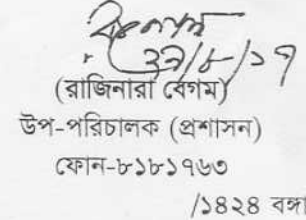 ২৯/৮/১৭
(রাজিনারা বেগম)
উপ-পরিচালক (প্রশাসন)
ফোন-৮১৮১৭৬৩
/১৪২৪ বঙ্গা